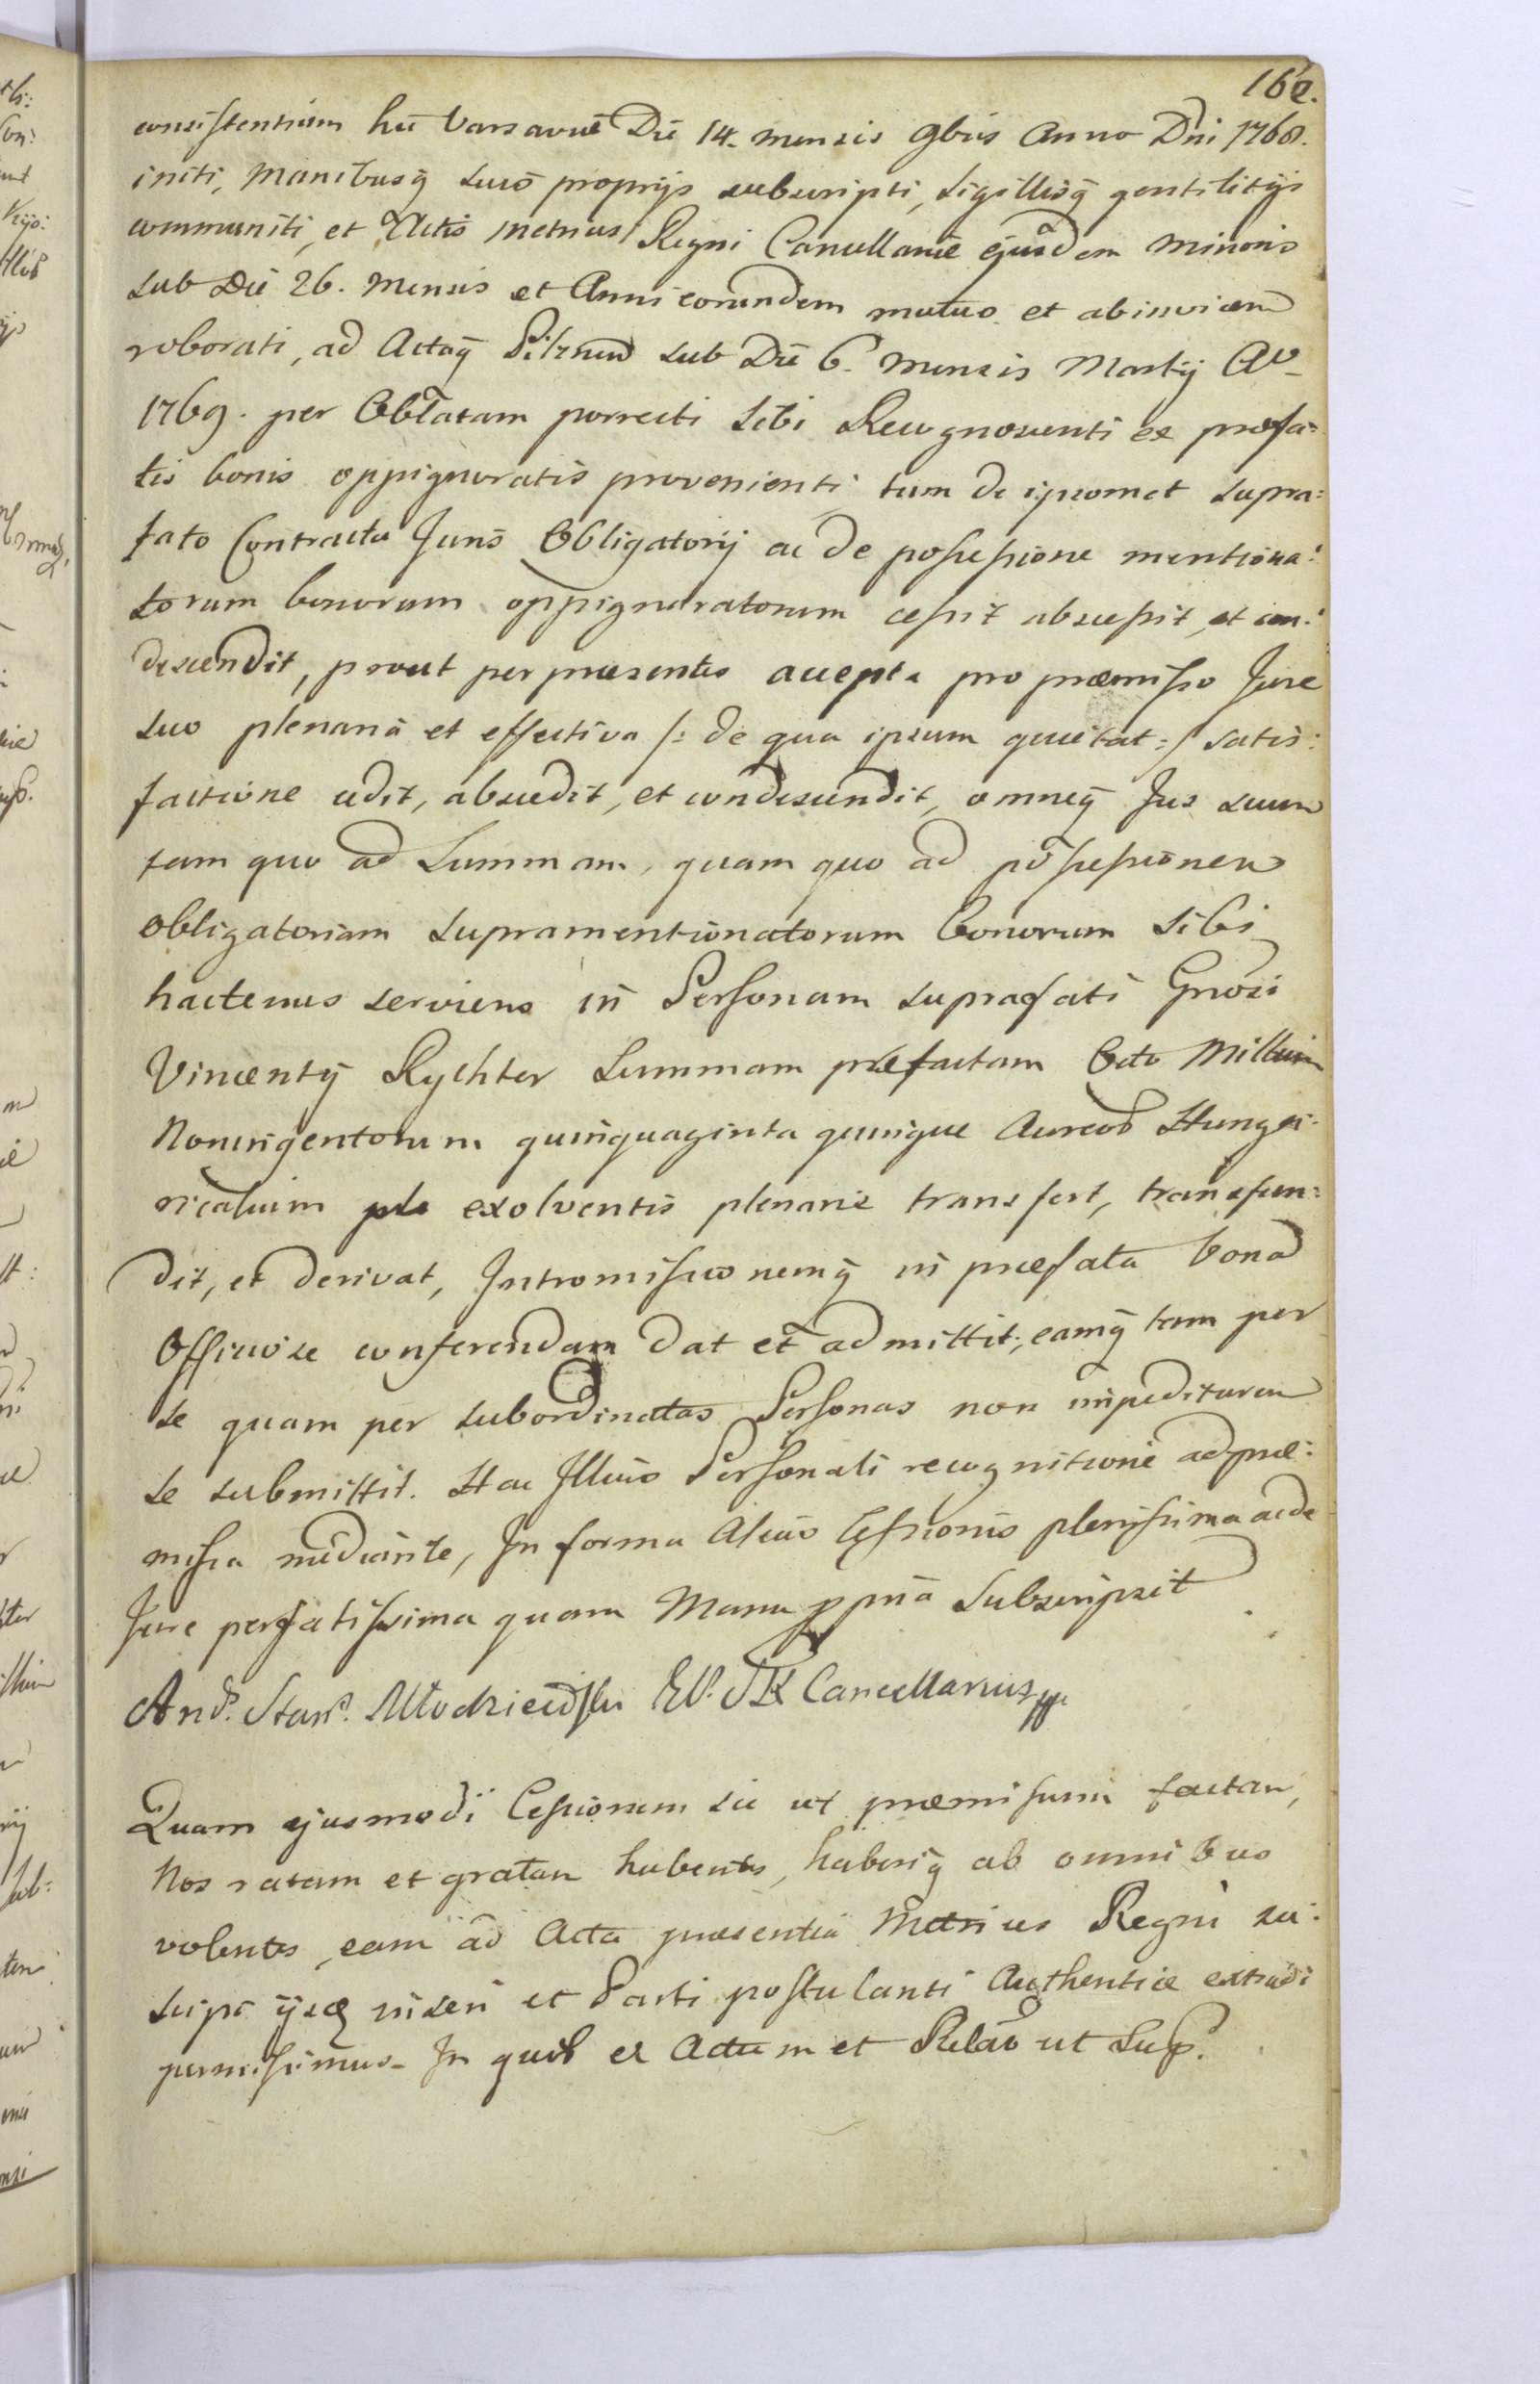 162.
consistentium hic Varsaviæ Die 14. mensis 9bris Anno Dni 1768.
initi, Manibusq̃ suis proprijs subscripti, sigillisq̃ gentilitijs
communiti, et Actis Metrices Regni Cancellariæ ejusdem Minoris
sub Die 26. Mensis et Anni eorundem mutuo et abinvicem
roborati, ad Actaq̃ Pilznen sub Die 6. Mensis Martij Ao
1769. per Oblatam porrecti sibi Recognoscenti ex præfa=
tis bonis oppignoratis provenienti tum de ipsomet supra=
fato Contractu Juris Obligatorij ac de possessione mentiona:
torum bonorum oppignoratorum cessit abscessit, et con:
descendit, prout per præsentes accepta pro præmisso Jure
suo plenaria et effectiva /: de qua ipsum quietat :/ satis:
factione cedit, abscedit, et condescendit, omneq̃ Jus suum
tam quo ad Summam, quam quo ad possessionem
obligatoriam supramentionatorum bonorum sibi
hactenus serviens in Personam suprafati Gnosi
Vincentij Rychter Summam præfactam Octo Millium
Noningentorum quinquaginta quinque Aureos Hunga:
ricalium exolventis plenarie transfert, transfun=
dit, et derivat, Intromissionemq̃ in præfata bona
Officiose conferendam dat et admittit; eamq̃ tam per
se quam per subordinatas Personas non impediturum
se submittit. Hac Illius Personali recognitione ad præ:
missa mediante, In forma Alias Cessionis plenissima ac de
Jure perfatissima quam Manu ppria Subscripsit
And. Stan. Młodzieiowski EP. Cancellarius mp
Quam ejusmodi Cessionem sic ut præmissum factam,
Nos ratam et gratam habentes, haberiq̃ ab omnibus
volentes, eam ad Acta præsentia Metrices Regni su:
scipi ijsq̃ inseri et Parti postulanti Authentice extradi
permisimus. In quor̃ et Actum et Relão ut Sup.